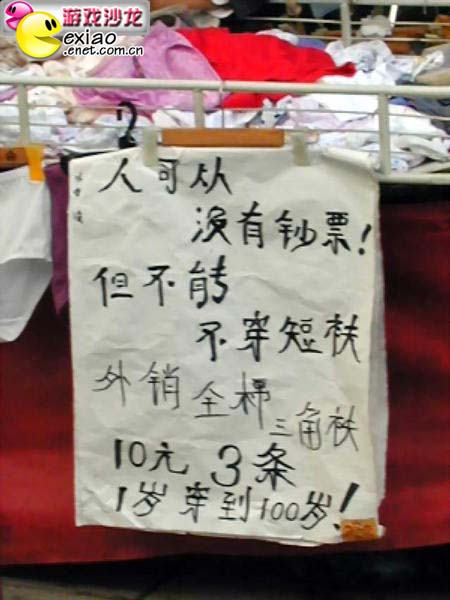 游戏沙龙
exiao.enet.com.cn
人可从
没有钞票!
但不能
不穿短袂
外销全棉
三角袂
10元 3条
1岁穿到100岁!